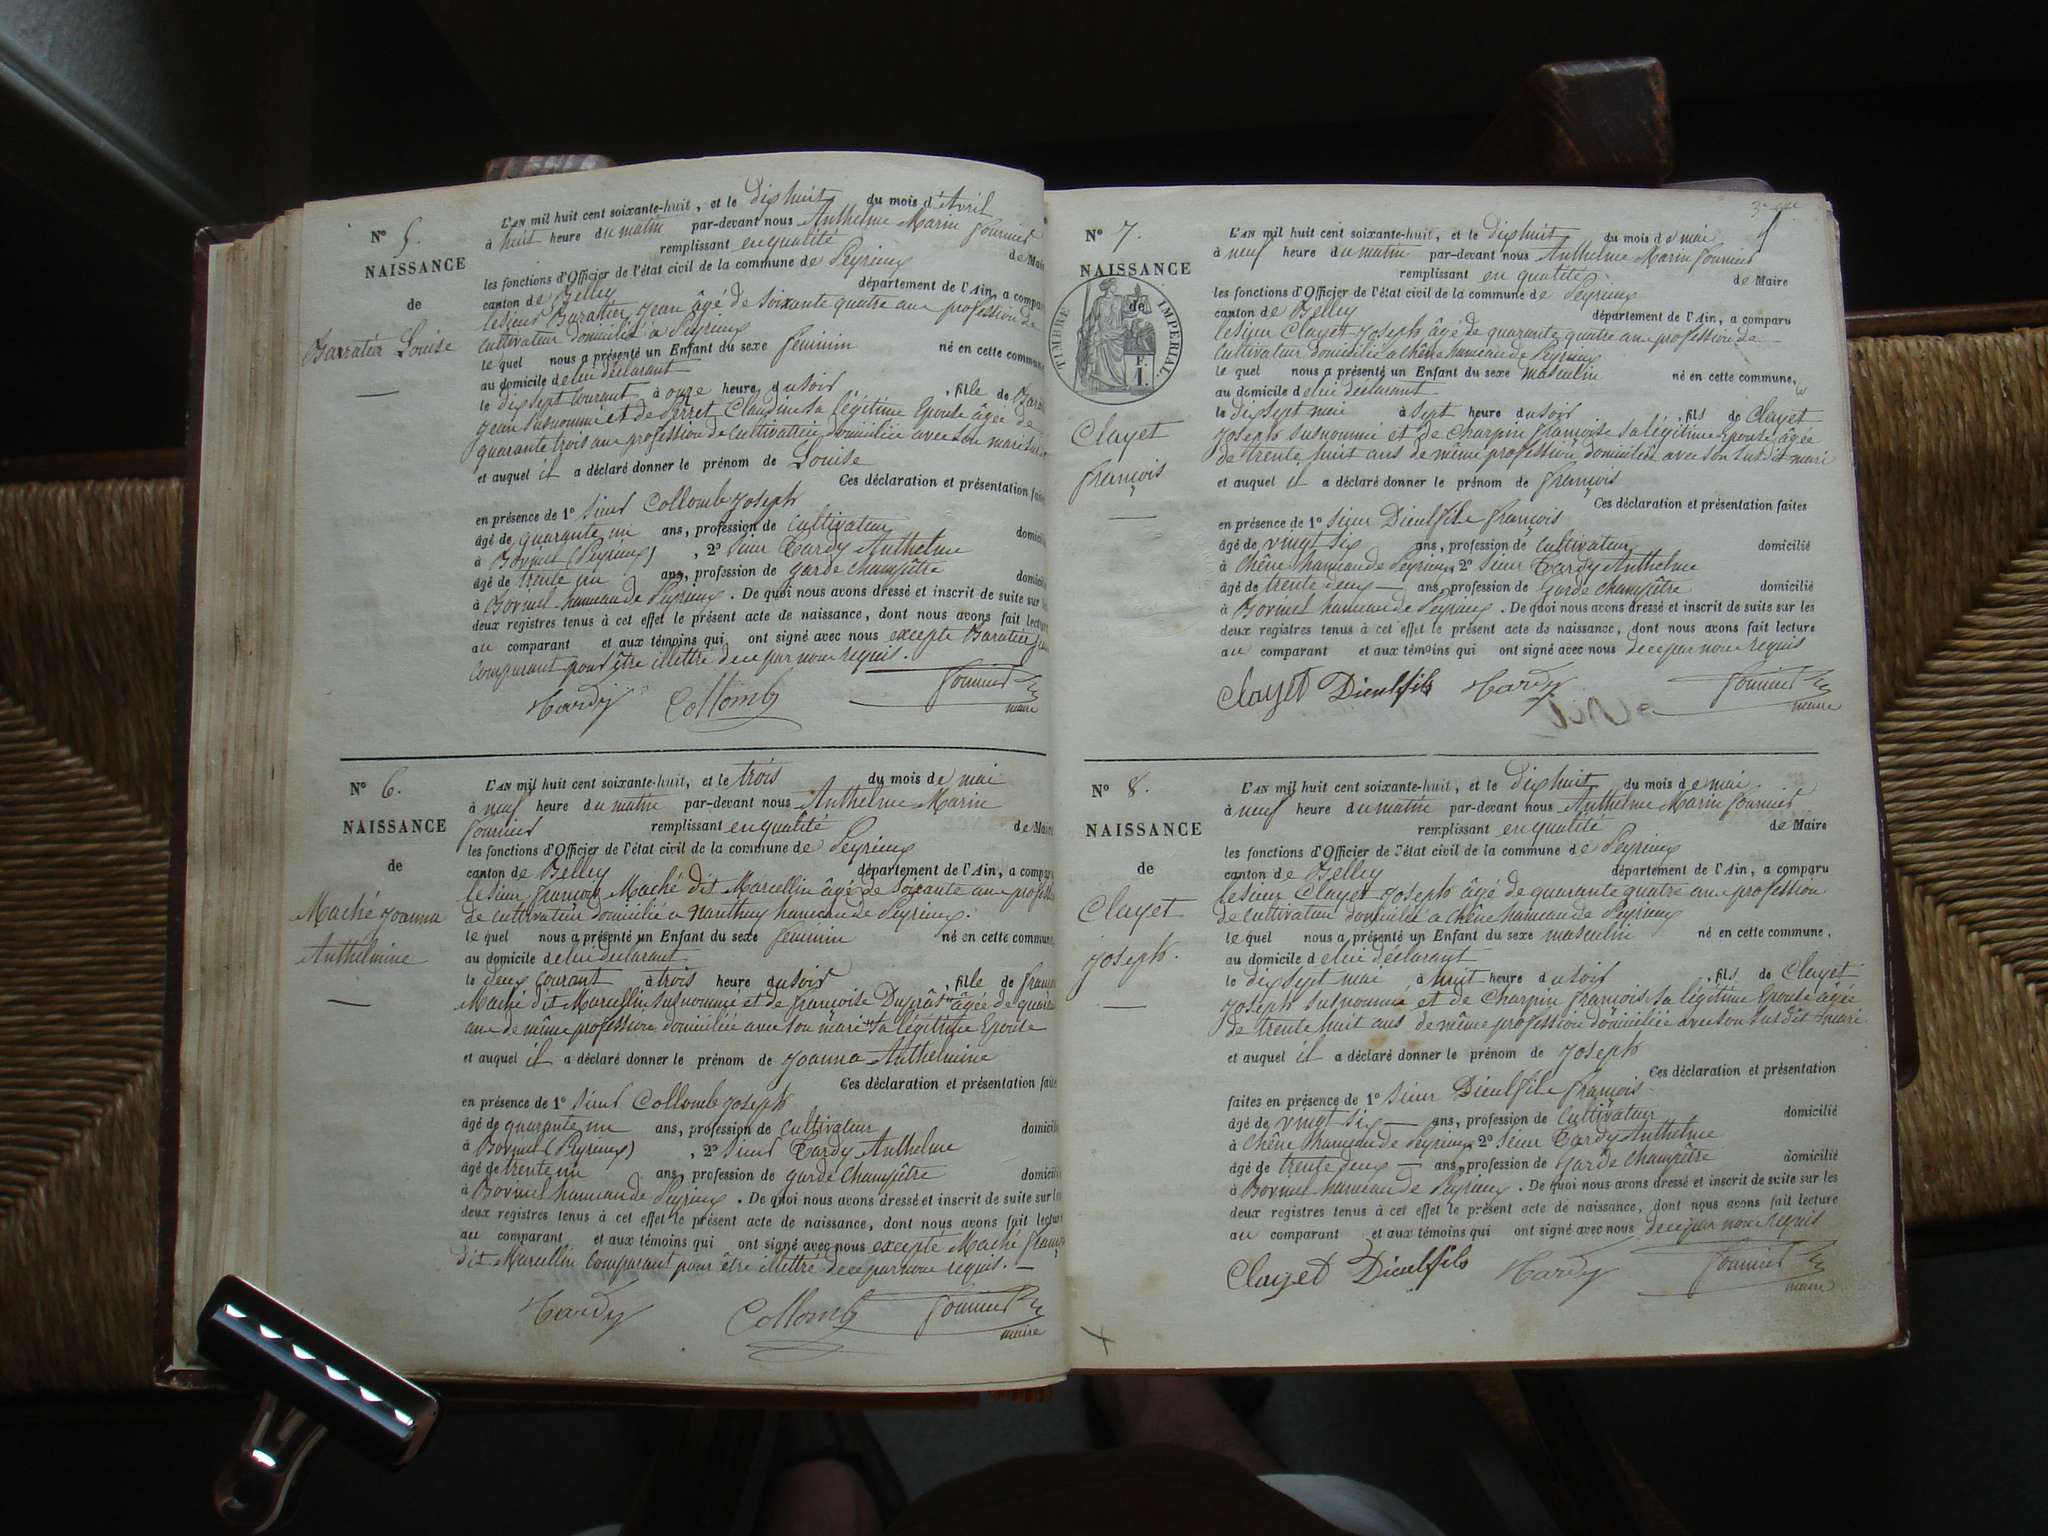 N° 5.
NAISSANCE
de
Barratier Louise
L'AN mil huit cent soixante-huit, et le dix huit du mois d'Avril
à huit heure du matin par-devant nous Anthelme Marin fournier
remplissant en qualité de Maire
les fonctions d'Officier de l'état civil de la commune de Peyrieux
canton de Belley département de l'Ain, a comparu
le sieur Baratier Jean âgé de soixante quatre ans profession de
cultivateur domicilié à Peyrieux
le quel nous a présenté un Enfant du sexe féminin né en cette commune
au domicile de lui déclarant
le dix sept courant à onze heure du soir , fille de
Jean susnommé et de Perret Claudine sa légitime Epouse âgée de
quarante trois ans profession de cultivatrice domiciliée avec son mari
et auquel il a déclaré donner le prénom de Louise
Ces déclaration et présentation faites
en présence de 1° sieur Collomb Joseph
âgé de quarante un ans, profession de cultivateur domicilié
à Bovinel (Peyrieux) , 2° sieur Tardy Anthelme
âgé de trente un ans, profession de garde champêtre domicilié
à Bovinel hameau de Peyrieux . De quoi nous avons dressé et inscrit de suite sur les
deux registres tenus à cet effet le présent acte de naissance, dont nous avons fait lecture
au comparant et aux témoins qui ont signé avec nous excepté Baratier Jean
comparant pour être illettré de ce par nous requis.
Tardy Collomb fournier
maire
N° 6.
NAISSANCE
de
Maché Joanna
Anthelmine
L'AN mil huit cent soixante-huit, et le trois du mois de mai
à neuf heure du matin par-devant nous Anthelme Marin
fournier remplissant en qualité de Maire
les fonctions d'Officier de l'état civil de la commune de Peyrieux
canton de Belley département de l'Ain, a comparu
le sieur françois Maché dit Marcellin âgé de soixante ans profession
de cultivateur domicilié à Nanthuy hameau de Peyrieux.
le quel nous a présenté un Enfant du sexe féminin né en cette commune
au domicile de lui déclarant
le deux courant à trois heure du soir , fille de françois
Maché dit Marcellin susnommé et de françoise Duprât âgée de quarante
ans de même profession domiciliée avec son mari sa légitime Epouse
et auquel il a déclaré donner le prénom de Joanna Anthelmine
Ces déclaration et présentation faites
en présence de 1° sieur Collomb Joseph
âgé de quarante un ans, profession de cultivateur domicilié
à Bovinel (Peyrieux) , 2° sieur Tardy Anthelme
âgé de trente un ans, profession de garde champêtre domicilié
à Bovinel hameau de Peyrieux . De quoi nous avons dressé et inscrit de suite sur les
deux registres tenus à cet effet le présent acte de naissance, dont nous avons fait lecture
au comparant et aux témoins qui ont signé avec nous excepté Maché françois
dit Marcellin comparant pour être illettré de ce par nous requis.
Tardy Collomb fournier
maire
N° 7.
NAISSANCE
de
TIMBRE IMPERIAL.
F.
1.
Clayet
françois
L'AN mil huit cent soixante-huit, et le dix huit du mois de mai
à neuf heure du matin par-devant nous Anthelme Marin fournier
remplissant en qualité de Maire
les fonctions d'Officier de l'état civil de la commune de Peyrieux
canton de Belley département de l'Ain, a comparu
le sieur Clayet Joseph âgé de quarante quatre ans profession de
cultivateur domicilié à Chêne hameau de Peyrieux
le quel nous a présenté un Enfant du sexe masculin né en cette commune,
au domicile de lui déclarant
le dix sept mai à sept heure du soir , fils de Clayet
Joseph susnommé et de Charpin françoise sa légitime Epouse âgée
de trente huit ans de même profession domiciliée avec son susdit mari
et auquel il a déclaré donner le prénom de françois
Ces déclaration et présentation faites
en présence de 1° sieur Dieulfils françois
âgé de vingt six ans, profession de cultivateur domicilié
à Chêne hameau de Peyrieux 2° sieur Tardy Anthelme
âgé de trente deux ans, profession de garde champêtre domicilié
à Bovinel hameau de Peyrieux . De quoi nous avons dressé et inscrit de suite sur les
deux registres tenus à cet effet le présent acte de naissance, dont nous avons fait lecture
au comparant et aux témoins qui ont signé avec nous de ce par nous requis
Clayet Dieulfils Tardy fournier
maire
N° 8.
NAISSANCE
de
Clayet
Joseph.
L'AN mil huit cent soixante-huit, et le dix huit du mois de mai
à neuf heure du matin par-devant nous Anthelme Marin fournier
remplissant en qualité de Maire
les fonctions d'Officier de l'état civil de la commune de Peyrieux
canton de Belley département de l'Ain, a comparu
le sieur Clayet Joseph âgé de quarante quatre ans profession
de cultivateur domicilié à Chêne hameau de Peyrieux
le quel nous a présenté un Enfant du sexe masculin né en cette commune.
au domicile de lui déclarant
le dix sept mai à huit heure du soir , fils de Clayet
Joseph susnommé et de Charpin françoise sa légitime Epouse âgée
de trente huit ans de même profession domiciliée avec son susdit mari
et auquel il a déclaré donner le prénom de Joseph
Ces déclaration et présentation
faites en présence de 1° sieur Dieulfils françois
âgé de vingt six ans, profession de cultivateur domicilié
à Chêne hameau de Peyrieux 2° sieur Tardy Anthelme
âgé de trente deux ans, profession de garde champêtre domicilié
à Bovinel hameau de Peyrieux . De quoi nous avons dressé et inscrit de suite sur les
deux registres tenus à cet effet le présent acte de naissance, dont nous avons fait lecture
au comparant et aux témoins qui ont signé avec nous de ce par nous requis
Clayet Dieulfils Tardy fournier
maire